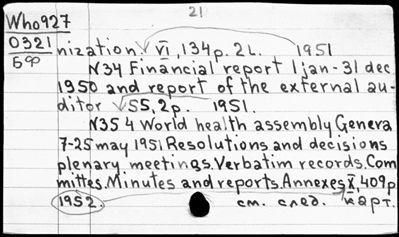 21
Who927
0321
nization. VI, 134p. 2L. 1951
59
N34 Financial report 1jan-31 dec
1950 and report of the external au-
ditor √55, 2p. 1951.
N35 4 World health assembly Genera
7-25 may 1951 Resolutions and decisions
plenary meetings. Verbatim records. Com
mittes. Minutes and reports. Annexes X, 409p
1952. см. след. карт.